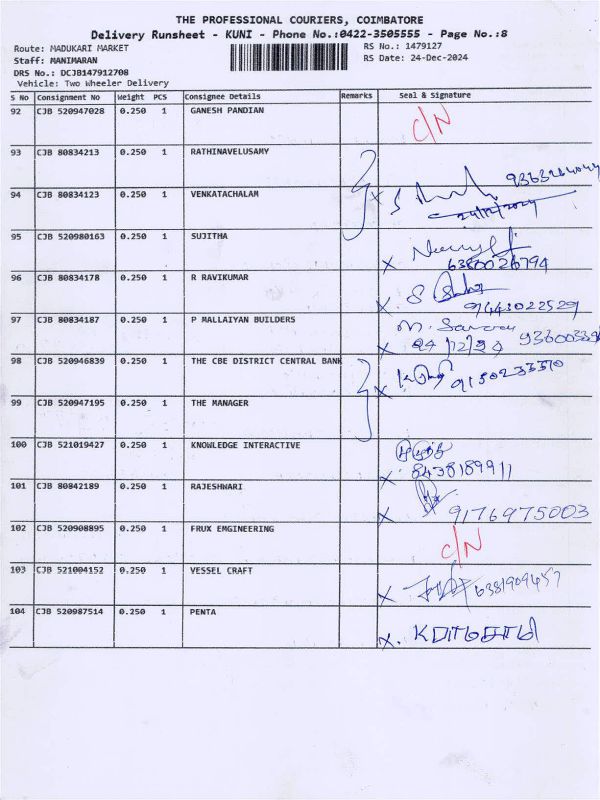 THE PROFESSIONAL COURIERS, COIMBATORE
Delivery Runsheet - KUNI - Phone No.:0422-3505555 - Page No.:8
Route: MADUKARI MARKET
RS No.: 1479127
Staff: MANIMARAN
RS Date: 24-Dec-2024
DRS No.: DCJB147912708
Vehicle: Two Wheeler Delivery
S No Consignment No Weight PCS Consignee Details Remarks Seal & Signature
92 CJB 520947028 0.250 1 GANESH PANDIAN C/N
93 CJB 80834213 0.250 1 RATHINAVELUSAMY
94 CJB 80834123 0.250 1 VENKATACHALAM 24/12/2024
95 CJB 520980163 0.250 1 SUJITHA 6380026794
96 CJB 80834178 0.250 1 R RAVIKUMAR 9443022529
97 CJB 80834187 0.250 1 P MALLAIYAN BUILDERS 24/12/24
98 CJB 520946839 0.250 1 THE CBE DISTRICT CENTRAL BANK 9150233370
99 CJB 520947195 0.250 1 THE MANAGER
100 CJB 521019427 0.250 1 KNOWLEDGE INTERACTIVE 8438189911
101 CJB 80842189 0.250 1 RAJESHWARI 9176975003
102 CJB 520908895 0.250 1 FRUX EMGINEERING C/N
103 CJB 521004152 0.250 1 VESSEL CRAFT 6381909457
104 CJB 520987514 0.250 1 PENTA